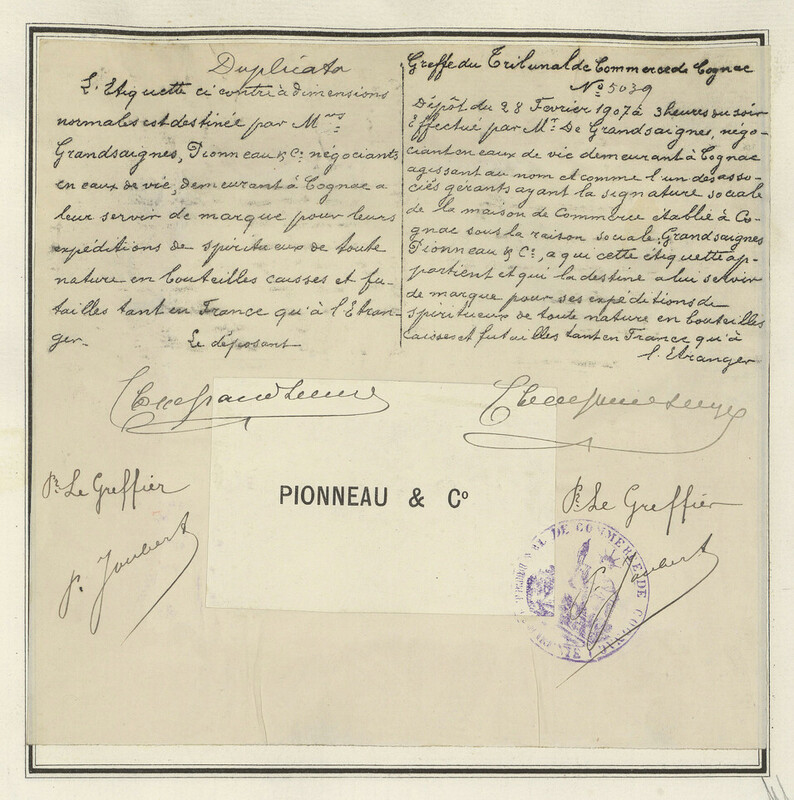 Duplicata
L'Etiquette ci contre à dimensions
normales est destinée par Mrs
Grandsaignes, Pionneau & Cie négociants
en eaux de vie, demeurant à Cognac a
leur servir de marque pour leurs
expéditions de spiritueux de toute
nature en bouteilles caisses et fu-
tailles tant en France qu'à l'Etran-
ger.
Le déposant
Greffe du Tribunal de Commerce de Cognac
No 5039
Dépôt du 28 Fevrier 1907 à 3 heures du soir
Effectué par Mr. De Grandsaignes, négo-
ciant en eaux de vie demeurant à Cognac
agissant au nom et comme l'un des asso-
ciés gérants ayant la signature sociale
de la maison de Commerce etablie à Co-
gnac sous la raison sociale. Grandsaignes
Pionneau & Cie, a qui cette étiquette ap-
partient et qui la destine a lui servir
de marque pour ses expéditions de
spiritueux de toute nature en bouteilles
caisses et futailles tant en France qu'à
l'Etranger
Pr Le Greffier
P. Joubert
PIONNEAU & Co
Pr Le Greffier
Joubert
TRIBUNAL DE COMMERCE DE COGNAC